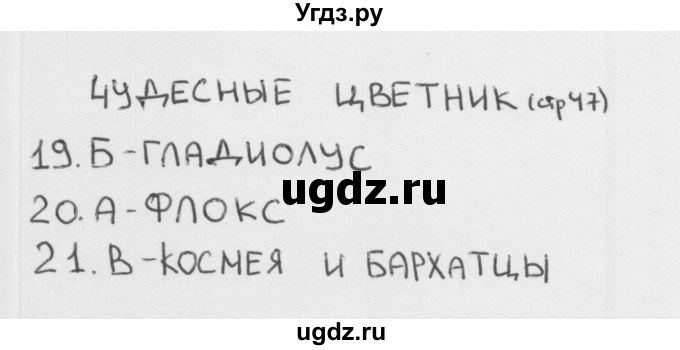 Угдз.ру
ЧУДЕСНЫЕ ЦВЕТНИК (стр 47)
19. Б - ГЛАДИОЛУС
ugdz.ru
20. А - ФЛОКС
21. В - КОСМЕЯ И БАРХАТЦЫ
ugdz.ru